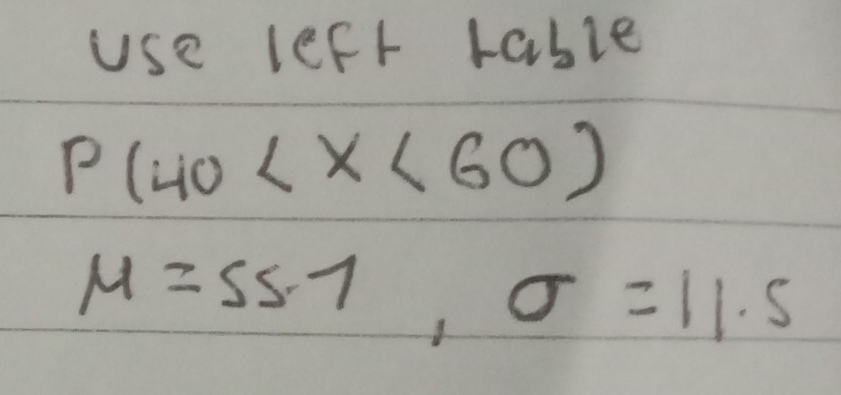 Use left table
P(40 < X < 60)
μ = 55.1, σ = 11.5